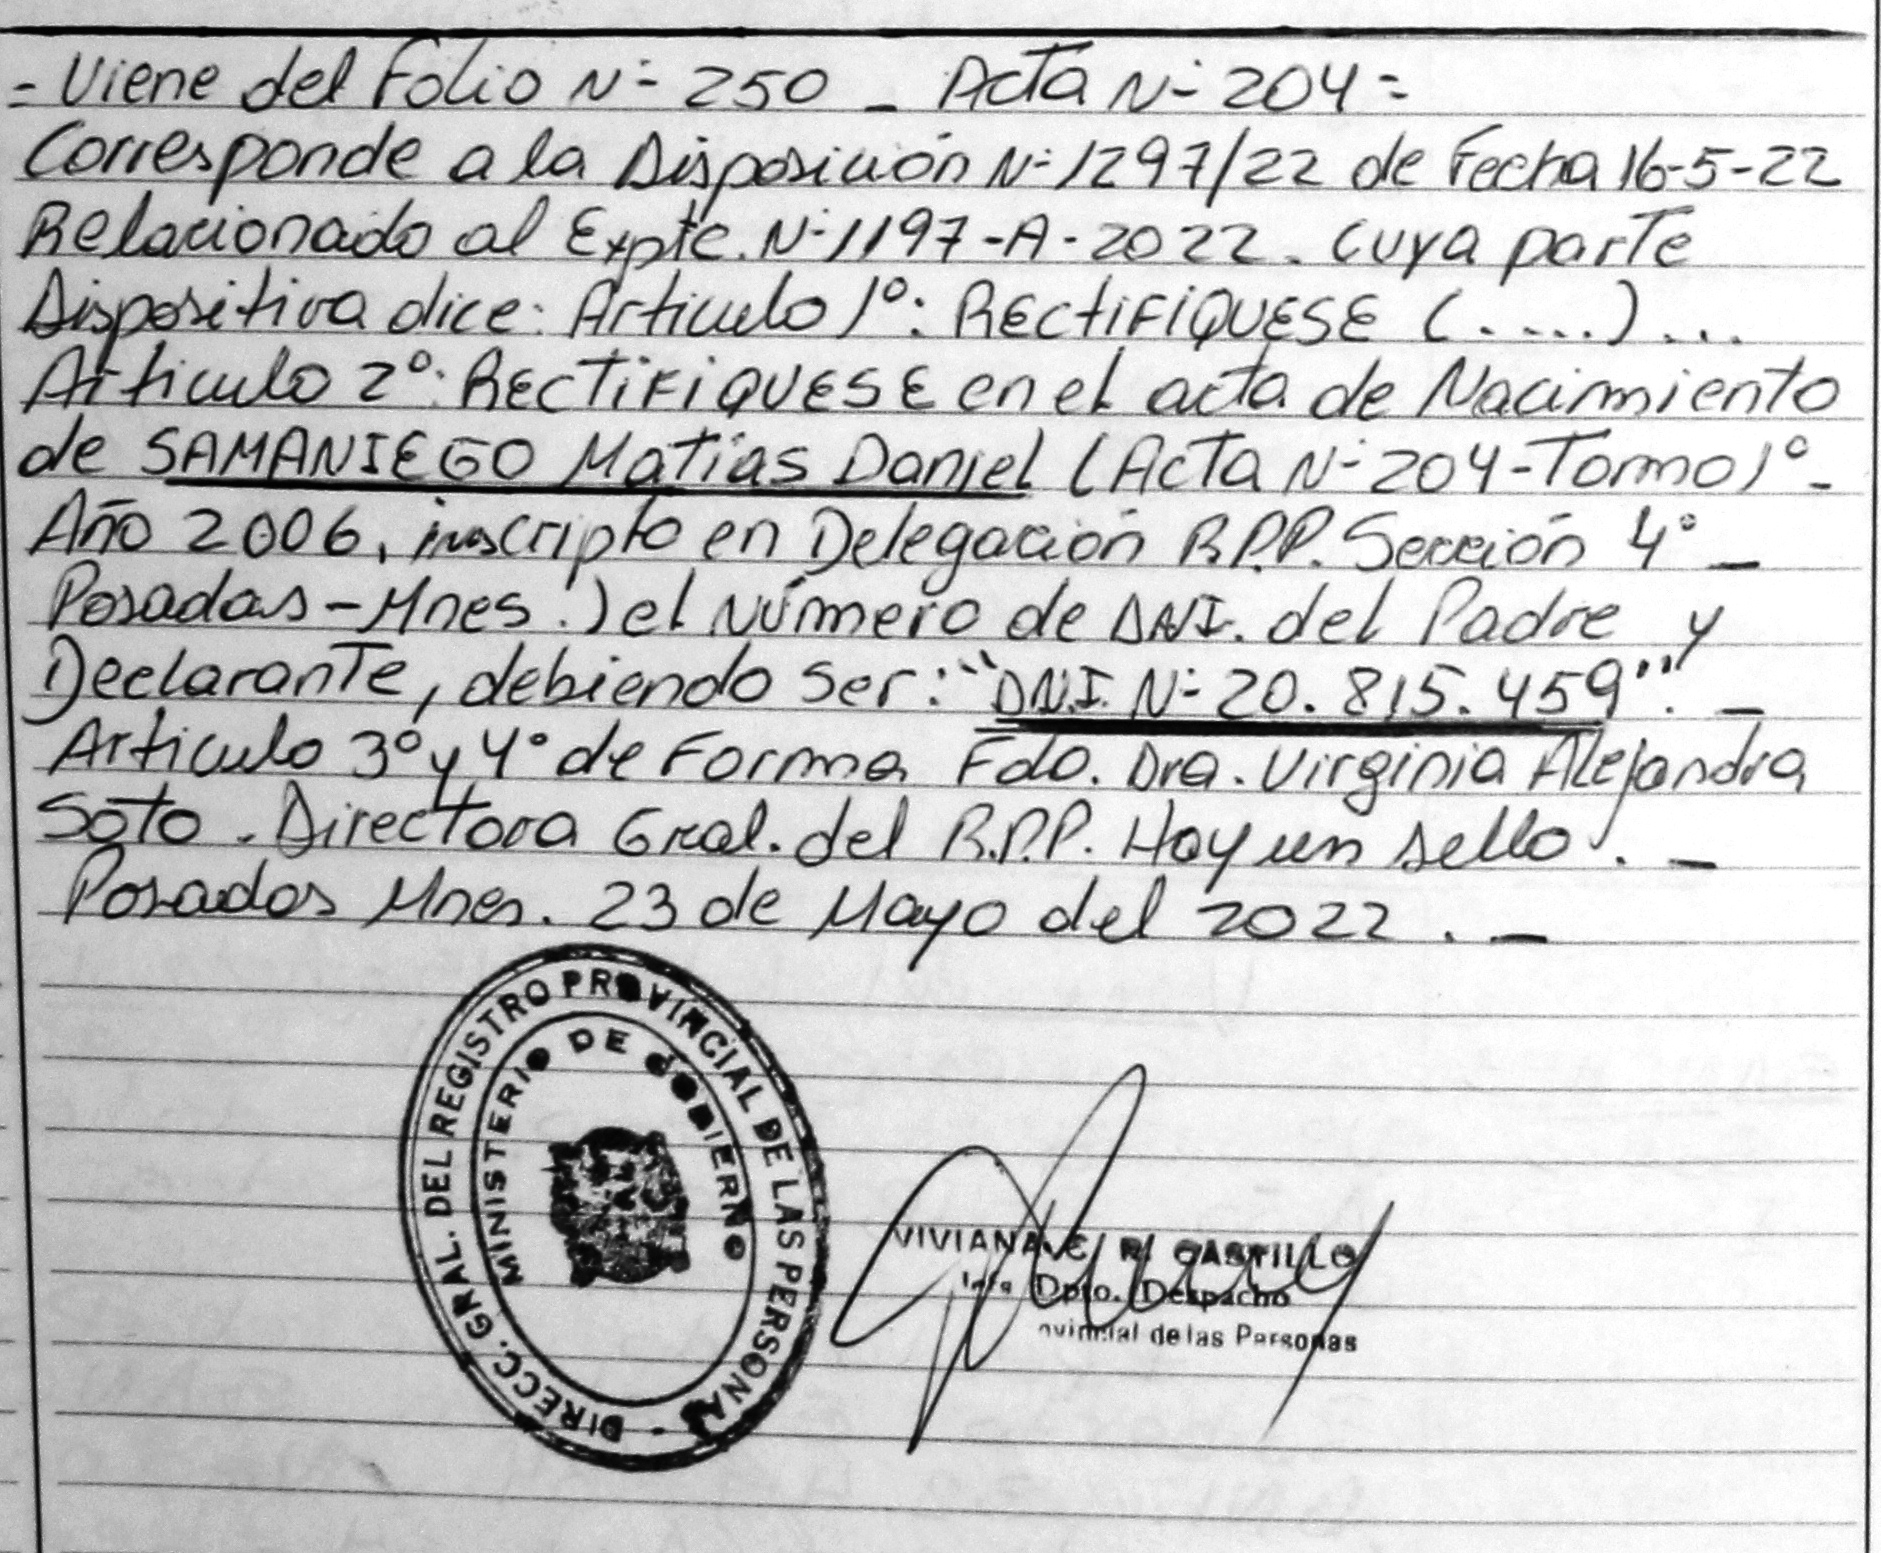 = Viene del Folio N- 250 _ Acta N- 204 =
Corresponde a la Disposición N- 1297/22 de Fecha 16-5-22
Relacionado al Expte. N- 1197-A-2022. Cuya parte
Dispositiva dice: Articulo 1°: RECTIFIQUESE (.....)...
Articulo 2°: RECTIFIQUESE en el acta de Nacimiento
de SAMANIEGO Matías Daniel (Acta N- 204-Tomo 1° -
Año 2006, inscripto en Delegación R.P.P. Sección 4° _
Posadas - Mnes.) el Número de DNI. del Padre y
Declarante, debiendo ser: "D.N.I. N- 20.815.459". _
Articulo 3° y 4° de Forma Fdo. Dra. Virginia Alejandra
Soto. Directora Gral. del R.P.P. Hay un sello. _
Posadas Mnes. 23 de Mayo del 2022. _
DIRECC. GRAL. DEL REGISTRO PROVINCIAL DE LAS PERSONAS -
MINISTERIO DE GOBIERNO
VIVIANA CASTILLO
Dpto. Despacho
de las Personas